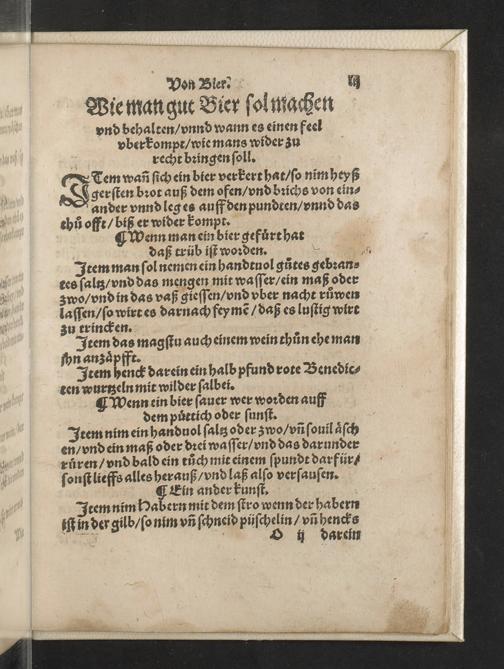 Von Bier.
Wie man gut Bier sol machen
vnd behalten/vnnd wann es einen feel
vberkompt/wie mans wider zu
recht bringen soll.
ITem wañ sich ein bier verkert hat/so nim heyß
gersten brot auß dem ofen/vnd brichs von ein-
ander vnnd leg es auff den pundten/vnnd das
thů offt/biß er wider kompt.
¶Wenn man ein bier gefürt hat
daß trüb ist worden.
Item man sol nemen ein handtuol gůtes gebran-
tes saltz/vnd das mengen mit wasser/ein maß oder
zwo/vnd in das vaß giessen/vnd vber nacht růwen
lassen/so wirt es darnach feymẽ/daß es lustig wirt
zu trincken.
Item das magstu auch einem wein thůn ehe man
jhn anzäpfft.
Item henck darein ein halb pfund rote Benedic-
ten wurtzeln mit wilder salbei.
¶Wenn ein bier sauer wer worden auff
dem püttich oder sunst.
Item nim ein handuol saltz oder zwo/vñ souil äsch
en/vnd ein maß oder drei wasser/vnd das darunder
rüren/vnd bald ein tůch mit einem spundt darfür/
sonst lieffs alles herauß/vnd laß also versausen.
¶Ein ander kunst.
Item nim Habern mit dem stro wenn der habern
ist in der gilb/so nim vñ schneid püschelin/vñ hencks
O ij darein